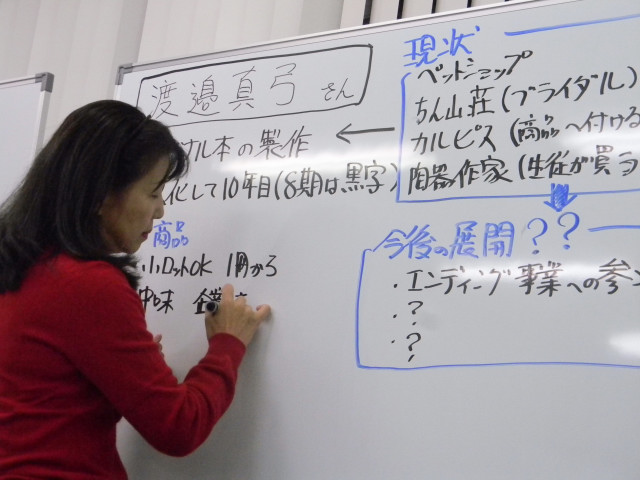 渡邉真弓 さん
ナル本の製作
化して10年目(8期は黒字)
商品
小ロットOK 1冊から
中味
現状
ペットショップ
ちん山荘(ブライダル)
カルピス(商品へ付ける
陶器作家(生徒が買う
今後の展開??
・エンディング事業への参
・?
・?